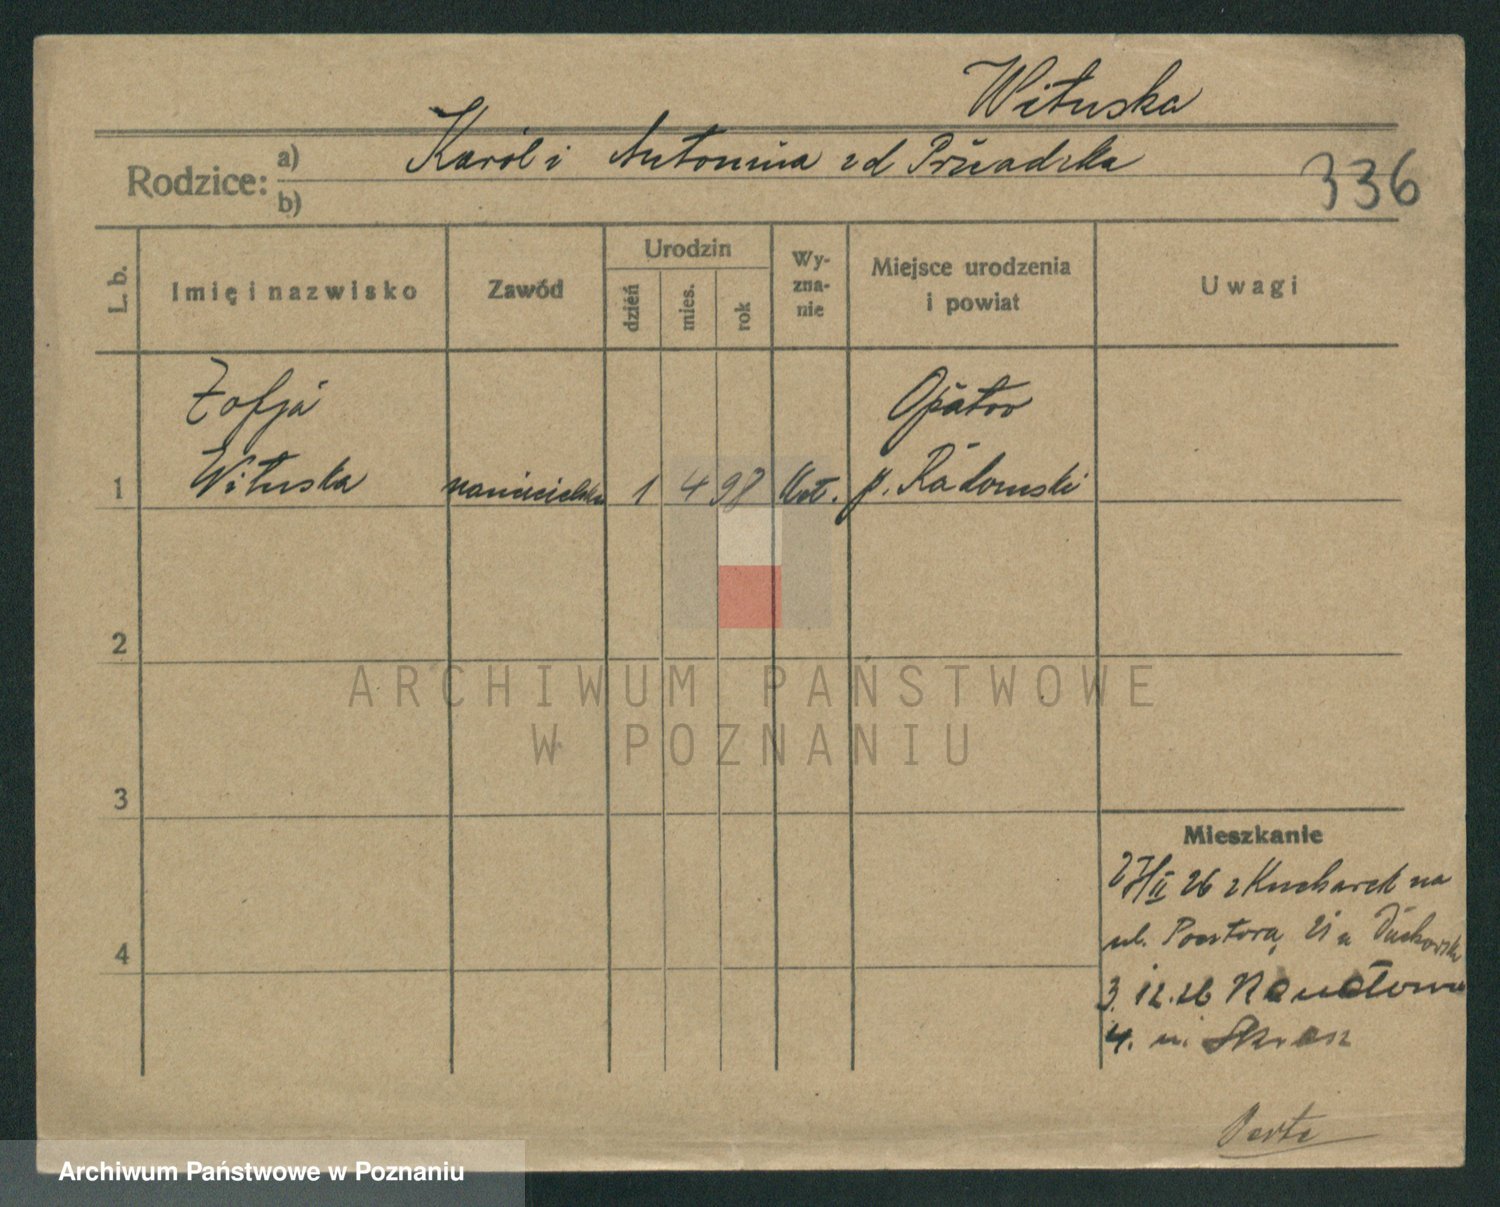 Wituska
Rodzice: a) Karól i Antonina z d
b)
336
L. b. Imię i nazwisko Zawód Urodzin dzień mies. rok Wy-zna-nie Miejsce urodzenia i powiat Uwagi
Zofja Opatów
1 Wituska nauczycielka 1 4 98 kat. p. Radomski
2
ARCHIWUM PAŃSTWOWE
W POZNANIU
3
Mieszkanie
27/II 26 z Kucharek na
ul. Pocztorą 21 u
4
3. 12. 26
4. u.
Verte
Archiwum Państwowe w Poznaniu